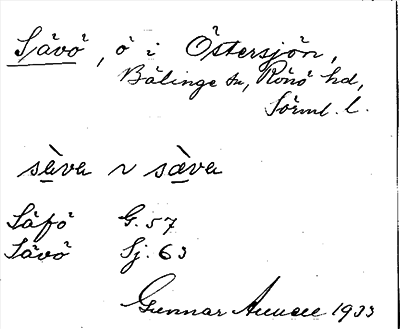 Sävö, ö i Östersjön,
Bälinge sn, Rönö hd,
Sörml. l.
sàva ~ sæ̀va
Säfö G. 57
Sävö Sj. 63
Gunnar 1933